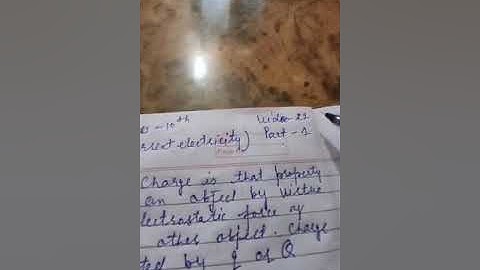 10th Video-21
electricity) Part-1
Charge is that property
an object by virtue
electrostatic force
other object. Charge
by q or Q